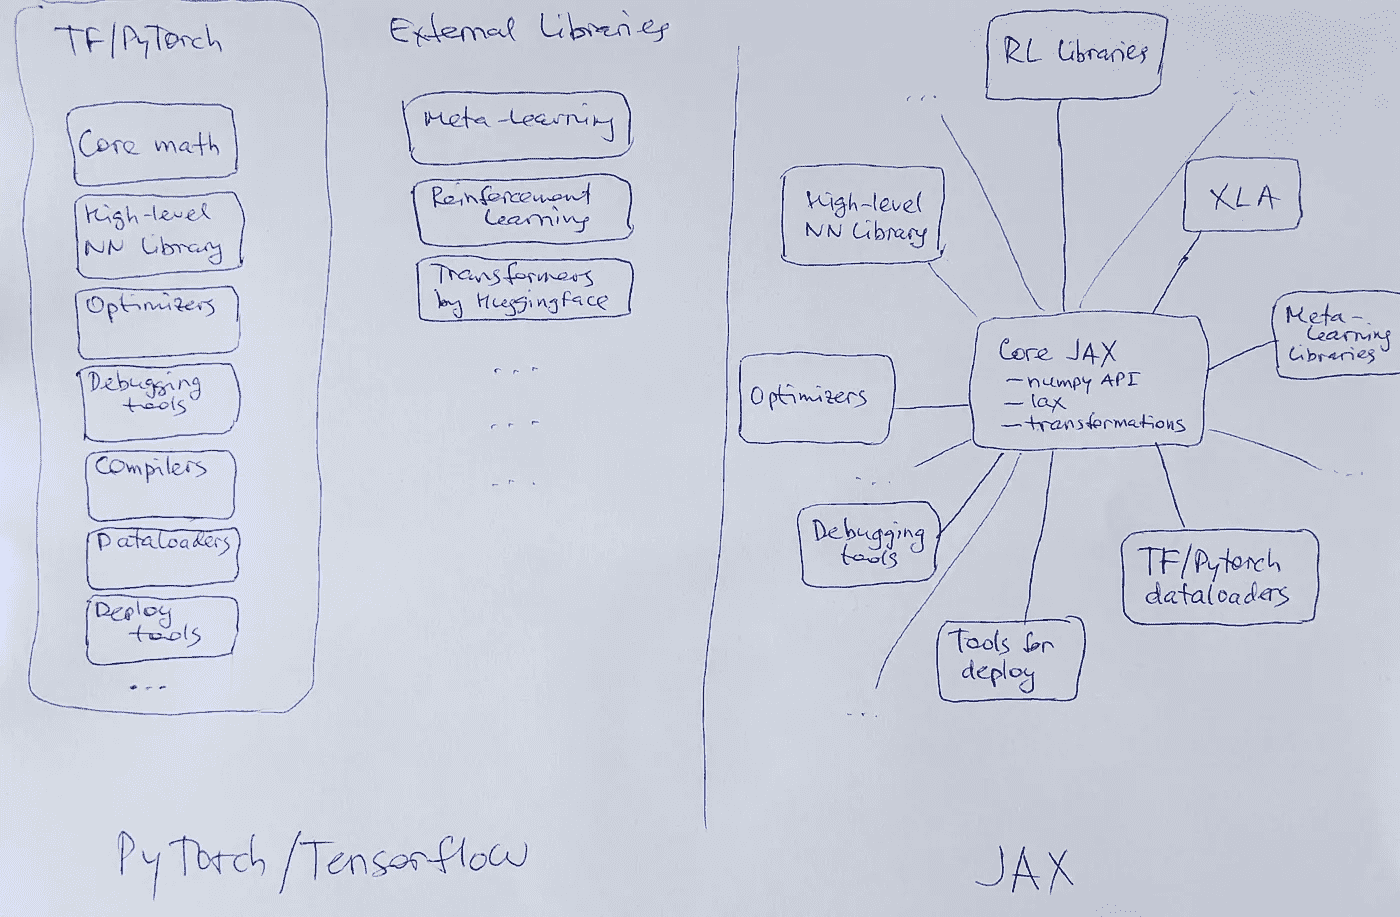 TF/PyTorch
Core math
High-level
NN Library
Optimizers
Debugging
tools
Compilers
Dataloaders
Deploy
tools
...
External Libraries
Meta-Learning
Reinforcement
Learning
Transformers
by Huggingface
...
...
...
PyTorch/Tensorflow
RL Libraries
...
...
High-level
NN Library
XLA
Meta-
Learning
Libraries
Core JAX
- numpy API
- lax
- transformations
Optimizers
...
...
Debugging
tools
TF/Pytorch
dataloaders
Tools for
deploy
...
JAX